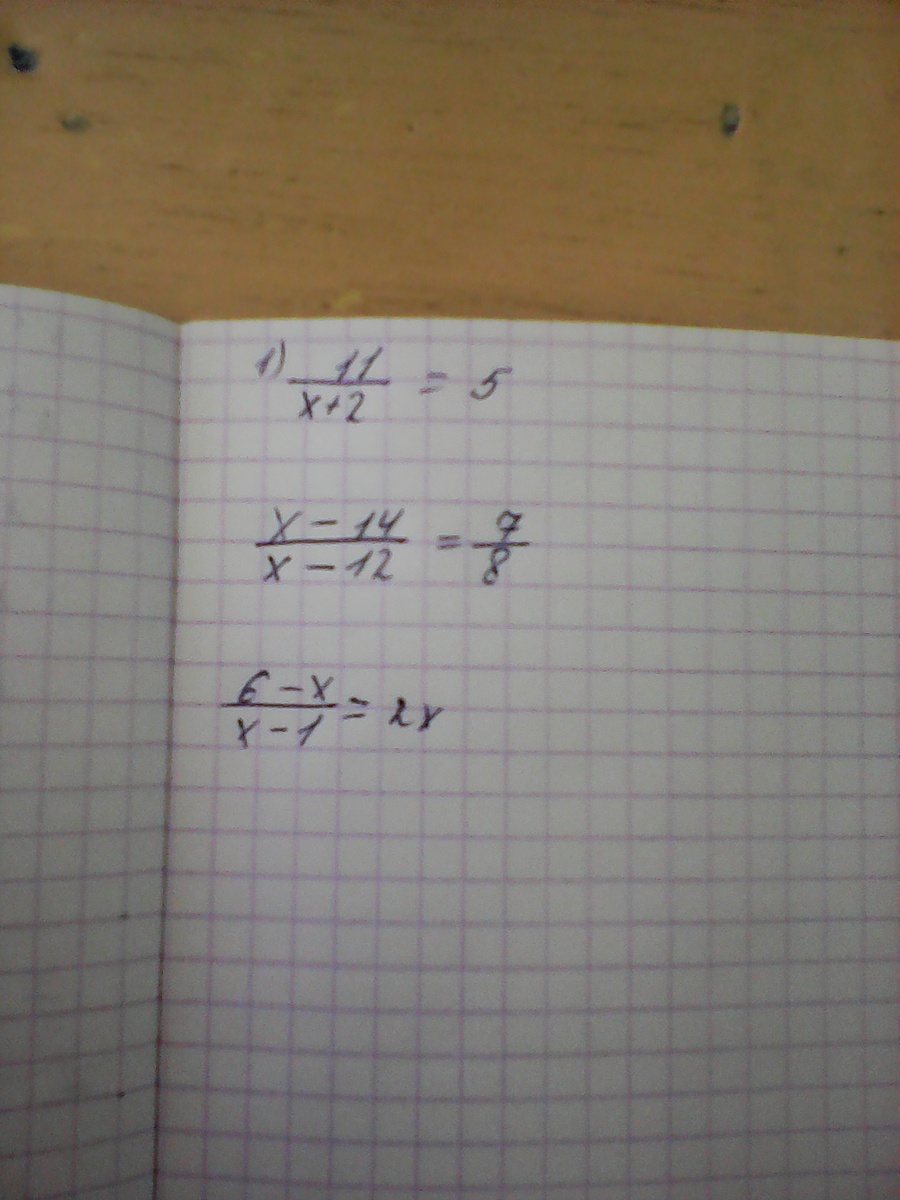 1) 11/(x+2) = 5
(x - 14)/(x - 12) = 7/8
(6 - x)/(x - 1) = 2x